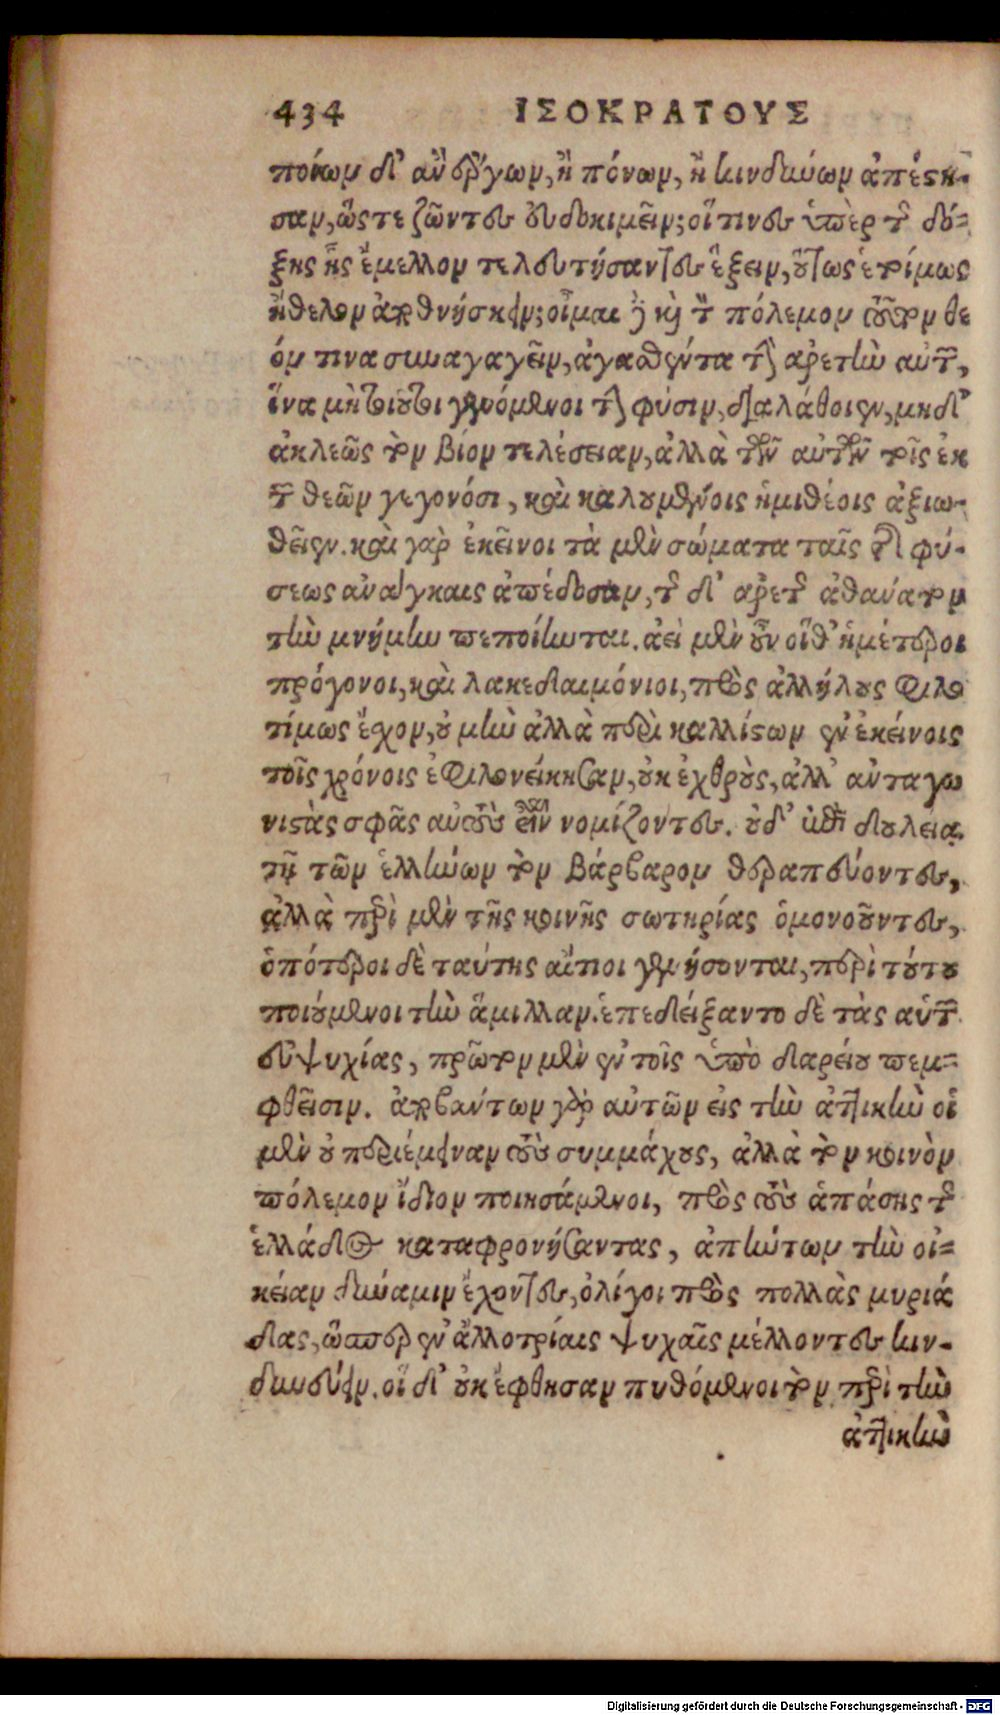 434 ΙΣΟΚΡΑΤΟΥΣ
ποίων δ' ἂν ἔργων, ἢ πόνων, ἢ κινδύνων ἀπέστη-
σαν, ὥςτε ζῶντες εὐδοκιμεῖν; οἵτινες ὑπὲρ τῆς δό-
ξης ἧς ἔμελλον τελευτήσαντες ἕξειν, οὕτως ἑτοίμως
ἤθελον ἀποθνήσκειν; οἶμαι δὲ καὶ τὸν πόλεμον θε
όν τινα συναγαγεῖν, ἀγασθέντα τὴν ἀρετὴν αὐτῶν,
ἵνα μὴ τοιοῦτοι γενόμενοι τὴν φύσιν, διαλάθοιεν, μηδ'
ἀκλεῶς τὸν βίον τελέσειαν, ἀλλὰ τῶν αὐτῶν τοῖς ἐκ
τῶν θεῶν γεγονόσι, καὶ καλουμένοις ἡμιθέοις ἀξιω-
θεῖεν. καὶ γὰρ ἐκεῖνοι τὰ μὲν σώματα ταῖς τῆς φύ-
σεως ἀνάγκαις ἀπέδοσαν, τῆς δ' ἀρετῆς ἀθάνατον
τὴν μνήμην πεποίηνται. ἀεὶ μὲν οὖν οἵθ' ἡμέτεροι
πρόγονοι, καὶ λακεδαιμόνιοι, πρὸς ἀλλήλους φιλο
τίμως ἔχον, οὐ μὴν ἀλλὰ περὶ καλλίστων ἐν ἐκείνοις
τοῖς χρόνοις ἐφιλονείκησαν, οὐκ ἐχθροὺς, ἀλλ' ἀνταγω
νιστὰς σφᾶς αὐτοὺς εἶναι νομίζοντες. οὐδ' ἐπὶ δουλείᾳ
τῇ τῶν ἑλλήνων τὸν βάρβαρον θεραπεύοντες,
ἀλλὰ περὶ μὲν τῆς κοινῆς σωτηρίας ὁμονοοῦντες,
ὁπότεροι δὲ ταύτης αἴτιοι γενήσονται, περὶ τούτου
ποιούμενοι τὴν ἅμιλλαν. ἐπεδείξαντο δὲ τὰς αὑτῶν
εὐψυχίας, πρῶτον μὲν ἐν τοῖς ὑπὸ δαρείου πεμ-
φθεῖσιν. ἀποβάντων γὰρ αὐτῶν εἰς τὴν ἀττικὴν οἱ
μὲν οὐ περιέμειναν τοὺς συμμάχους, ἀλλὰ τὸν κοινὸν
πόλεμον ἴδιον ποιησάμενοι, πρὸς τοὺς ἁπάσης τῆς
ἑλλάδος καταφρονήσαντας, ἀπήντων τὴν οἰ-
κείαν δύναμιν ἔχοντες, ὀλίγοι πρὸς πολλὰς μυριά
δας, ὥσπερ ἐν ἀλλοτρίαις ψυχαῖς μέλλοντες κιν-
δυνεύειν. οἱ δ' οὐκ ἔφθησαν πυθόμενοι τὸν περὶ τὴν
ἀττικὴν
Digitalisierung gefördert durch die Deutsche Forschungsgemeinschaft - DFG